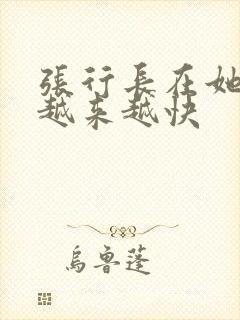 張行長在她
越來越快
烏魯蓬